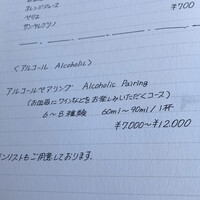 オレンジジュース
¥700
ペリエ
サンペレグリノ
〈アルコール Alcoholic〉
アルコールペアリング Alcoholic Pairing
(お皿毎にワインなどをお楽しみいただくコース)
6〜8種類 60ml〜90ml/1杯
¥7,000〜¥12,000
ンリストもご用意しております。